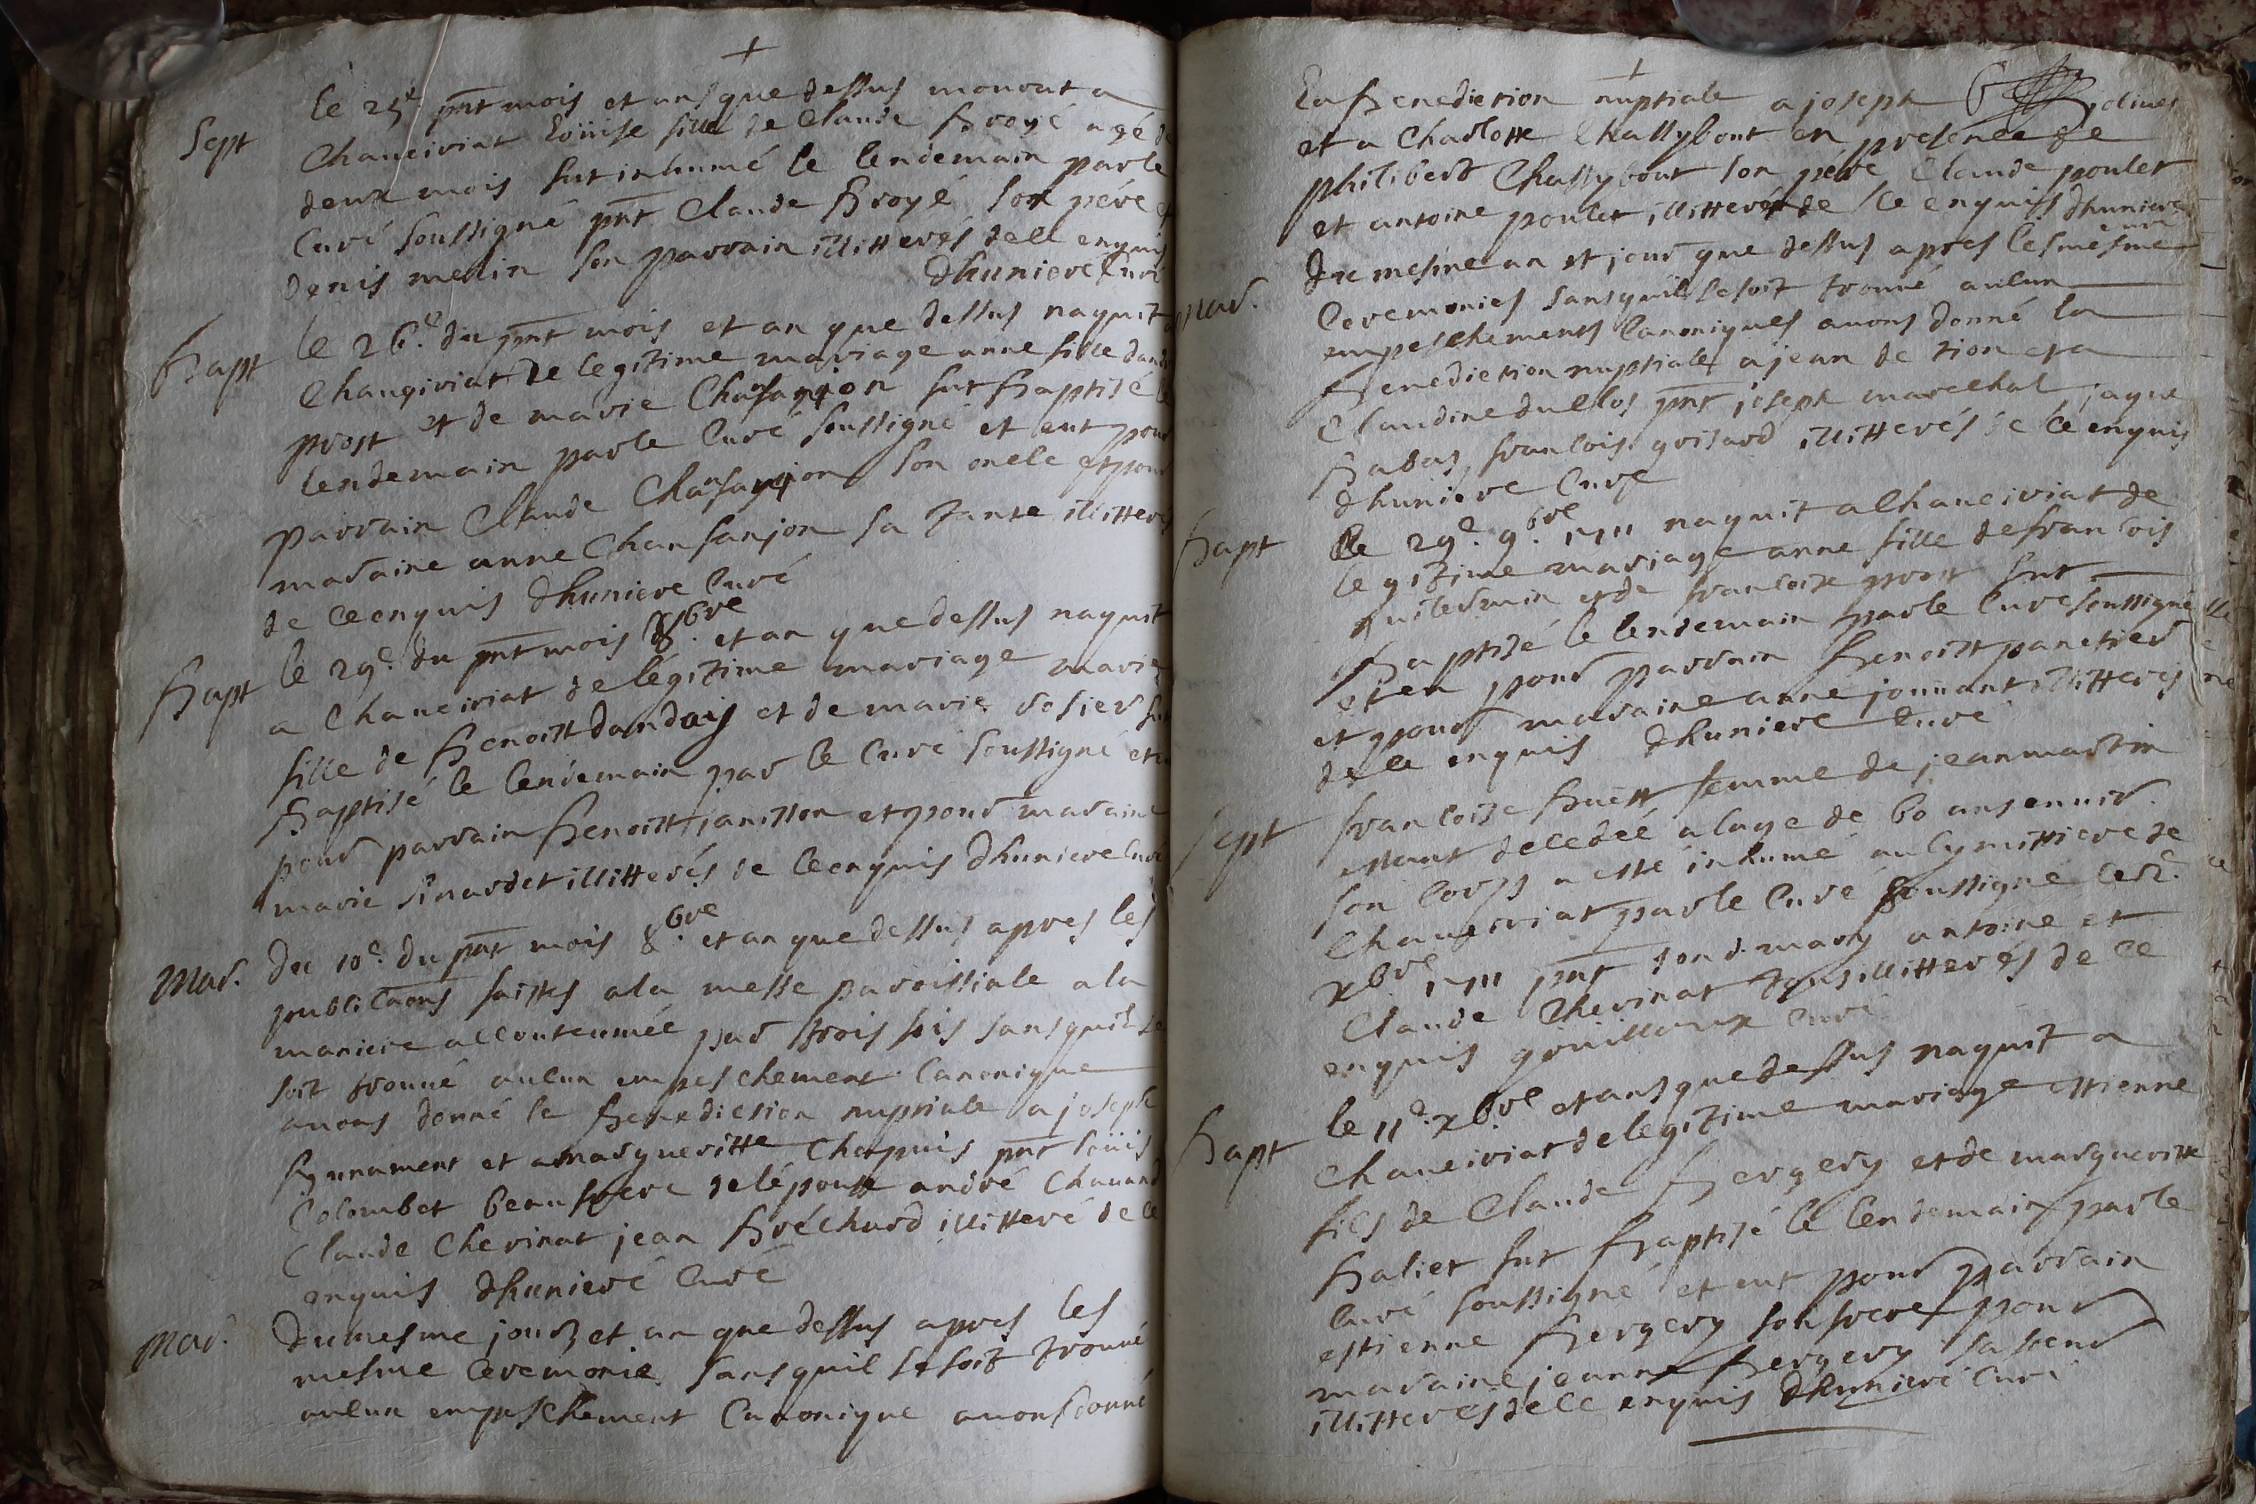 Sept
le 25e. pnt mois et ans que dessus mourut a
Chaneiriat Loüise fille de Claude Broyé agé de
deux mois fut inhumé le lendemain par le
Curé soussigné pnt Claude Broyé son pére et
denis melin son parrain illitterés de ce enquis
dhuniere Curé
Bapt
le 26e. du pnt mois et an que dessus naquit a
Changiriat de legitime mariage anne fille
prost et de marie Chanfanjon fut Baptisé le
lendemain par le Curé soussigné et eut pour
parrain Claude Chanfanjon son oncle et pour
maraine anne Chanfanjon sa tante illitterés
de ce enquis dhuniere Curé
Bapt
le 29e. du pnt mois 8.bre et an que dessus naquit
a Chaneiriat de légitime mariage marie
fille de Benoist dandois et de marie rosier fut
Baptisé le lendemain par le Curé soussigné et eu
pour parrain Benoist janisson et pour maraine
marie sinardet illitterés de ce enquis dhuniere Curé
Mar.
du 10e. du pnt mois 8.bre et an que dessus apres les
publicaons faittes a la messe paroissiale a la
maniere accoutumée par trois fois sans quil se
soit trouué aucun empeschement Canonique
auons donné la Benediction nuptiale a joseph
et a margueritte Chapuis pnt Loüis
Colombet beau frere de léponse andré Chanard
Claude Cherinat jean Bréchard illitteré de ce
enquis dhunieré Curé
Mar.
du mesme jour et an que dessus apres les
mesme Ceremonie sans quil se soit trouué
aucun empeschement Canonique auons donné
La Benediction nuptiale a joseph
et a Charlotte Chassybout en presence de
philibert Chassybout son pere Claude poulet
et antoine poulet illitterés de ce enquis dhuniere
Curé
Mar.
du mesme an et jour que dessus apres les mesme
Ceremonies sans quil se soit trouué aucun
empeschements Canoniques auons donné la
Benediction nuptiale a jean de tion et a
Claudine duclos pnt joseph marechal jaque
Babas francois grisard illitterés de ce enquis
dhuniere Curé
Bapt
Le 29e. 9.bre 1711 naquit a Chaneiriat de
legitime mariage anne fille de francois
et de francoise prost fut
Baptisé le lendemain par le Curé soussigné
et eu pour parrain Benoist panetier
et pour maraine anne joüuant illitterés
de ce enquis dhuniere Curé
Sept
francoise huett femme de jean martin
estant decedeé a lage de 60 ans enuir.
son Corps a esté inhumé au Cymittiere de
Chaneiriat par le Curé soussigné le 2e.
xbre 1711 pnt sond. mary antoine et
Claude Cherinat tous illitterés de ce
enquis Curé
Bapt
le 11e. xbre et ans que dessus naquit a
Chaneiriat de legitime mariage estienne
fils de Claude Bergery et de margueritte
Baliet fut Baptisé le lendemain par le
Curé soussigné et eut pour parrain
estienne Bergery son frere pour
maraine jeanne Bergery sa seur
illitterés de ce enquis dhunieré Curé